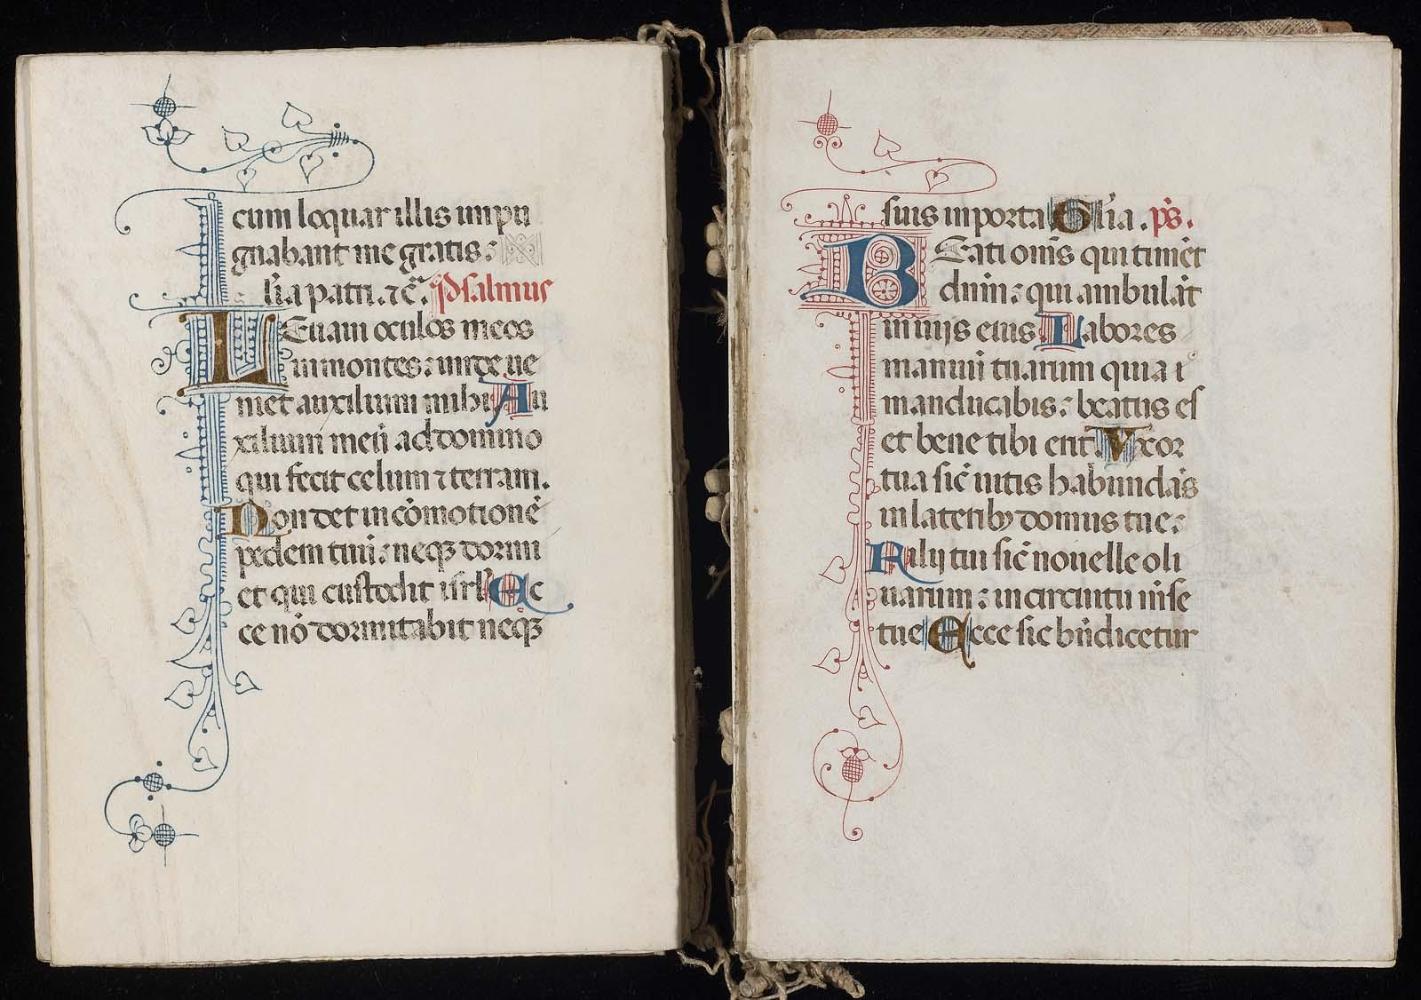 cum loquar illis inpu
gnabant me gratis:
lia patri. ⁊ c̃. psalmus
LEuaui oculos meos
in montes: unde ue
niet auxilium mihi Au
xilium meũ a domino
qui fecit celum ⁊ terram.
Non det in cõmotionẽ
pedem tuũ: neqꝫ dormi
et qui custodit isrł Ec
ce nõ dormitabit neqꝫ
suis in porta Glia. ps.
BEati oms qui timẽt
dnm: qui ambulãt
in uijs eius Labores
manuũ tuarum quia
manducabis: beatus es
et bene tibi erit Vxor
tua sic̃ uitis habundãs
in lateribꝫ domus tue:
Filij tui sic̃ nouelle oli
uarum: in circuitu mẽse
tue Ecce sic bñdicetur